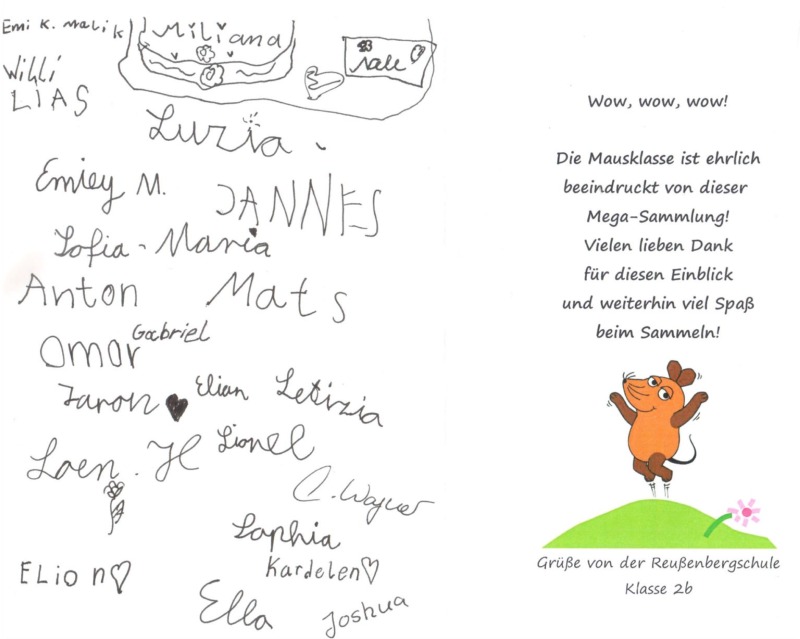 Emi K. Malik
Miliana
Willi
Nele
LIAS
Luzia
Emiey M.
JANNES
Sofia-Maria
Anton
Mats
Gabriel
Omar
Jaron
Elian
Letizia
Lionel
Loen. H
C. Wagner
Sophia
ELion
Kardelen
Ella
Joshua
Wow, wow, wow!
Die Mausklasse ist ehrlich
beeindruckt von dieser
Mega-Sammlung!
Vielen lieben Dank
für diesen Einblick
und weiterhin viel Spaß
beim Sammeln!
Grüße von der Reußenbergschule
Klasse 2b